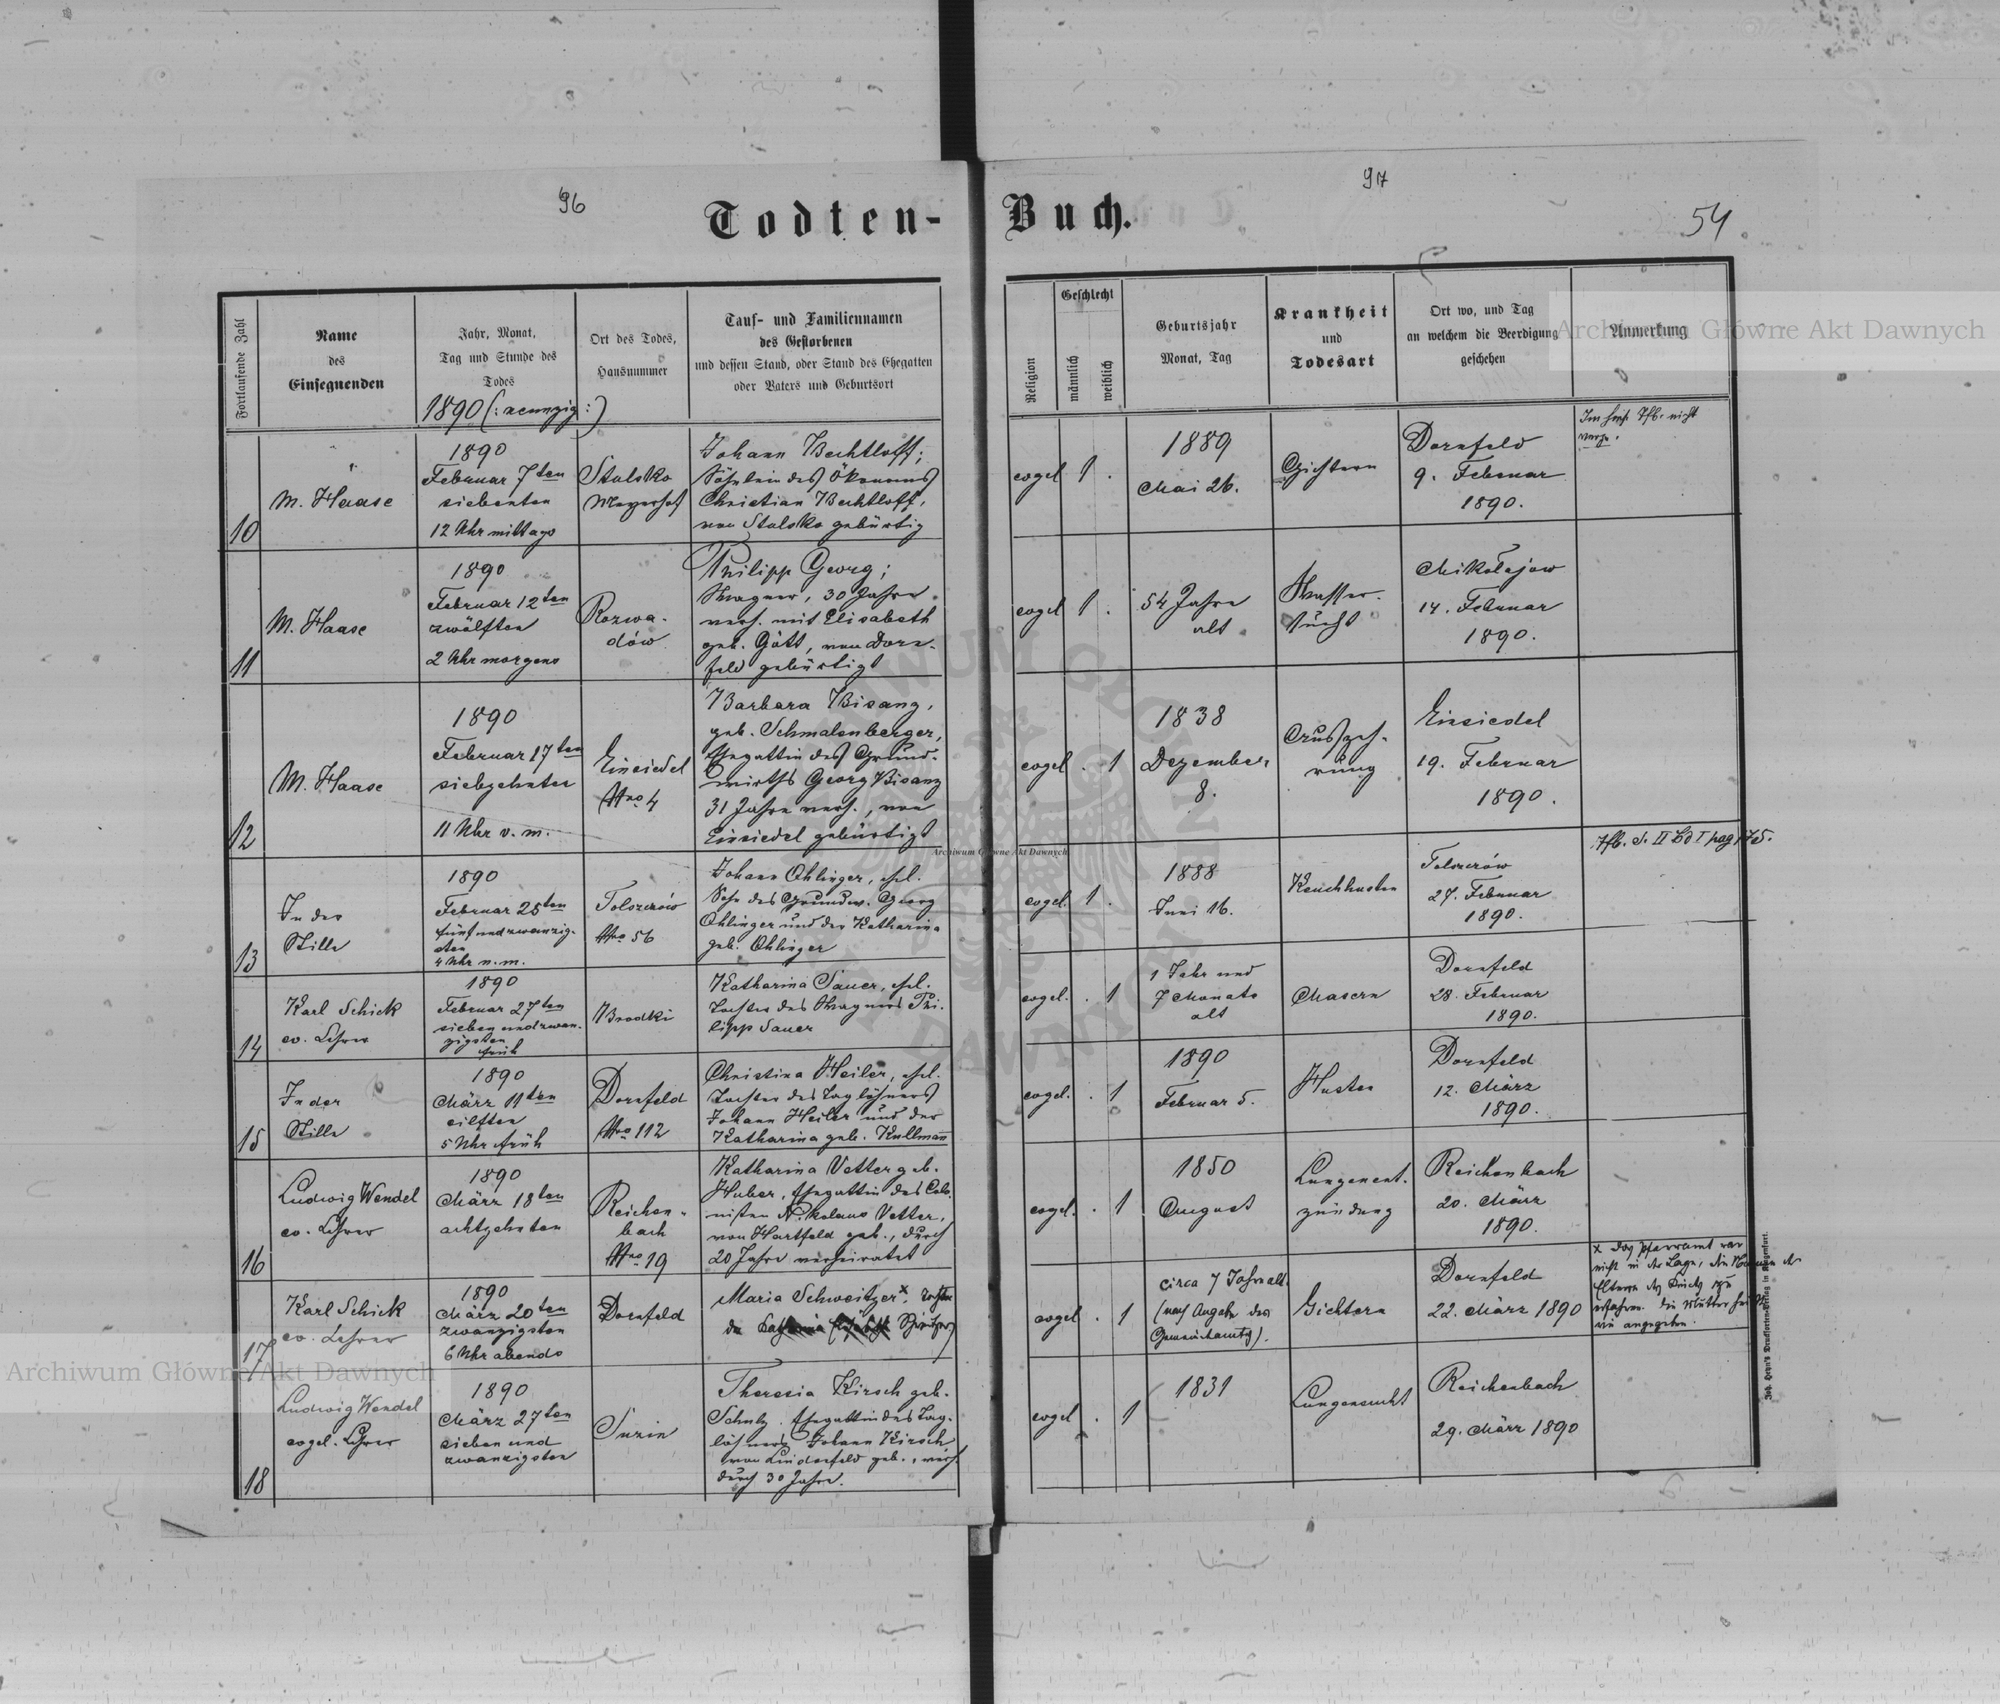 96
97
54
Todten-Buch.
Fortlaufende Zahl
Name
des
Einsegnenden
Jahr, Monat,
Tag und Stunde des
Todes
Ort des Todes,
Hausnummer
Tauf- und Familiennamen
des Gestorbenen
und dessen Stand, oder Stand des Ehegatten
oder Vaters und Geburtsort
Religion
Geschlecht
männlich
weiblich
Geburtsjahr
Monat, Tag
Krankheit
und
Todesart
Ort wo, und Tag
an welchem die Beerdigung
geschehen
Anmerkung
1890 (: neunzig :)
10
M. Haase
1890
Februar 7ten
siebenten
12 Uhr mittags
Stulsko
Meyerhof
Johann Bechtloff;
Söhnlein des Ökonomes
Christian Bechtloff,
von Stulsko gebürtig
evgel
1 .
1889
Mai 26.
Gichtern
Dornfeld
9. Februar
1890.
nicht
11
M. Haase
1890
Februar 12ten
zwölften
2 Uhr morgens
Rozwa-
dów
Philipp Georg;
Wagner, 30 Jahre
verh. mit Elisabeth
geb. Gött, von Dorn-
feld gebürtigt
evgel
1 .
54 Jahre
alt
Wasser-
sucht
Mikołajow
14. Februar
1890.
12
M. Haase
1890
Februar 17ten
siebzehnten
11 Uhr v. m.
Einsiedel
Hno 4
Barbara Bisanz,
geb. Schmalenberger,
Ehegattin des Grund-
wirths Georg Bisanz
31 Jahre verh., von
Einsiedel gebürtigt
evgel
. 1
1838
Dezember
8.
Auszeh-
rung
Einsiedel
19. Februar
1890.
13
In der
Stille
1890
Februar 25ten
fünfundzwanzig-
sten
4 Uhr n. m.
Tolszczów
Hno 56
Johann Ohlinger, ehel.
Sohn des Grundw. Georg
Ohlinger und der Katharina
geb. Ohlinger
evgel.
1 .
1888
Juni 16.
Keuchhusten
Tolszczów
27. Februar
1890.
Tfb. S. II Bd I pag 175.
14
Karl Schick
ev. Lehrer
1890
Februar 27ten
sieben und zwan-
zigsten
früh
Brodki
Katharina Sauer, ehel.
Tochter des Wagners Phi-
lipp Sauer
evgel.
. 1
1 Jahr und
7 Monate
alt
Masern
Dornfeld
28. Februar
1890.
15
In der
Stille
1890
März 11ten
eilften
5 Uhr früh
Dornfeld
Hno 112
Christina Heiler, ehel.
Tochter des Taglöhners
Johann Heiler und der
Katharina geb. Kullmann
evgel.
. 1
1890
Februar 5.
Husten
Dornfeld
12. März
1890.
16
Ludwig Wendel
ev. Lehrer
1890
März 18ten
achtzehnten
Reichen-
bach
Hno 19
Katharina Vetter geb.
Huber, Ehegattin des Colo-
nisten Nikolaus Vetter,
von Hartfeld geb., durch
20 Jahre verheiratet
evgel.
. 1
1850
August
Lungenent-
zündung
Reichenbach
20. März
1890.
17
Karl Schick
ev. Lehrer
1890
März 20ten
zwanzigsten
6 Uhr abends
Dornfeld
Maria Schweitzer x, Tochter
der
evgel
. 1
circa 7 Jahre alt
(nach Angabe des
Gemeindeamts).
Gichtern
Dornfeld
22. März 1890
x Das Pfarramt war
nicht in der Lage, die Namen der
Eltern des Kindes zu
erfahren. Die Mutter
wie angegeben.
18
Ludwig Wendel
evgel. Lehrer
1890
März 27ten
sieben und
zwanzigsten
Turin
Theresia Kirsch geb.
Schulz. Ehegattin des Tag-
löhners Johann Kirsch
von Lindenfeld geb., verh.
durch 30 Jahre.
evgel
. 1
1831
Lungensucht
Reichenbach
29. März 1890
Archiwum Główne Akt Dawnych
Archiwum Główne Akt Dawnych
Archiwum Główne Akt Dawnych